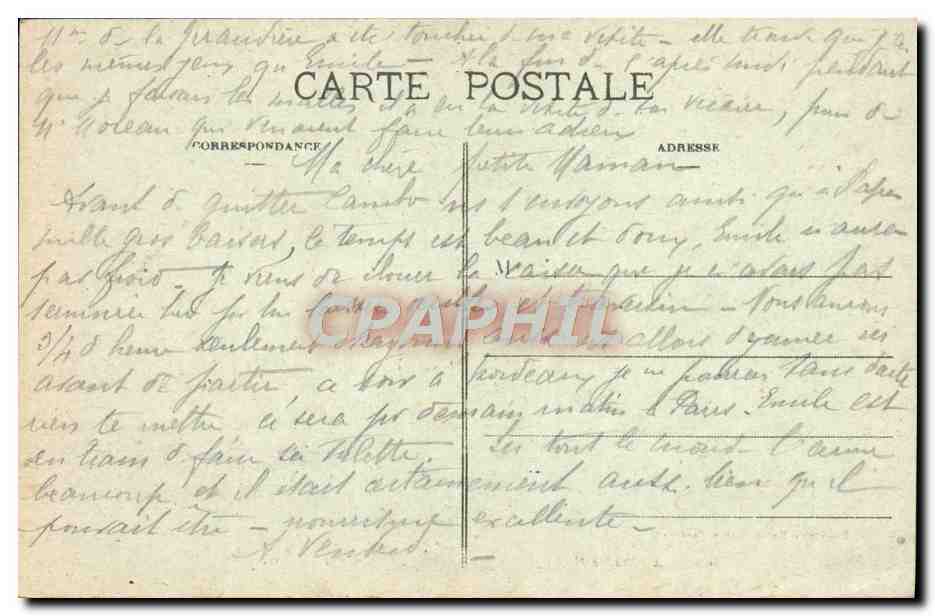 Mme de la Grandière a été touchée de ma visite – elle trouve que j'ai
les mêmes yeux qu'Emile – A la fin de l'après midi pendant
CARTE POSTALE
que je faisais les malles il a eu la visite du vicaire, puis de
Mr Moreau qui venaient faire leurs adieux
CORRESPONDANCE
ADRESSE
Ma chère petite Maman
Avant de quitter Cambo ns t'envoyons ainsi qu'à Papa
mille gros baisers, le temps est beau et doux, Emile n'aura
pas froid – Je viens de la Maison que je n'avais pas
terminée – Nous aurons
3/4 d'heure seulement à Bayonne aussi ns allons dîner ici
avant de partir ce soir à Bordeaux je ne pourrai sans doute
rien te mettre ce sera pr demain matin à Paris – Emile est
en train de faire sa toilette. Ici tout le monde l'aime
beaucoup et il était certainement aussi bien qu'il
pouvait être – nourriture excellente –
A Vendredi.
CPAPHIL